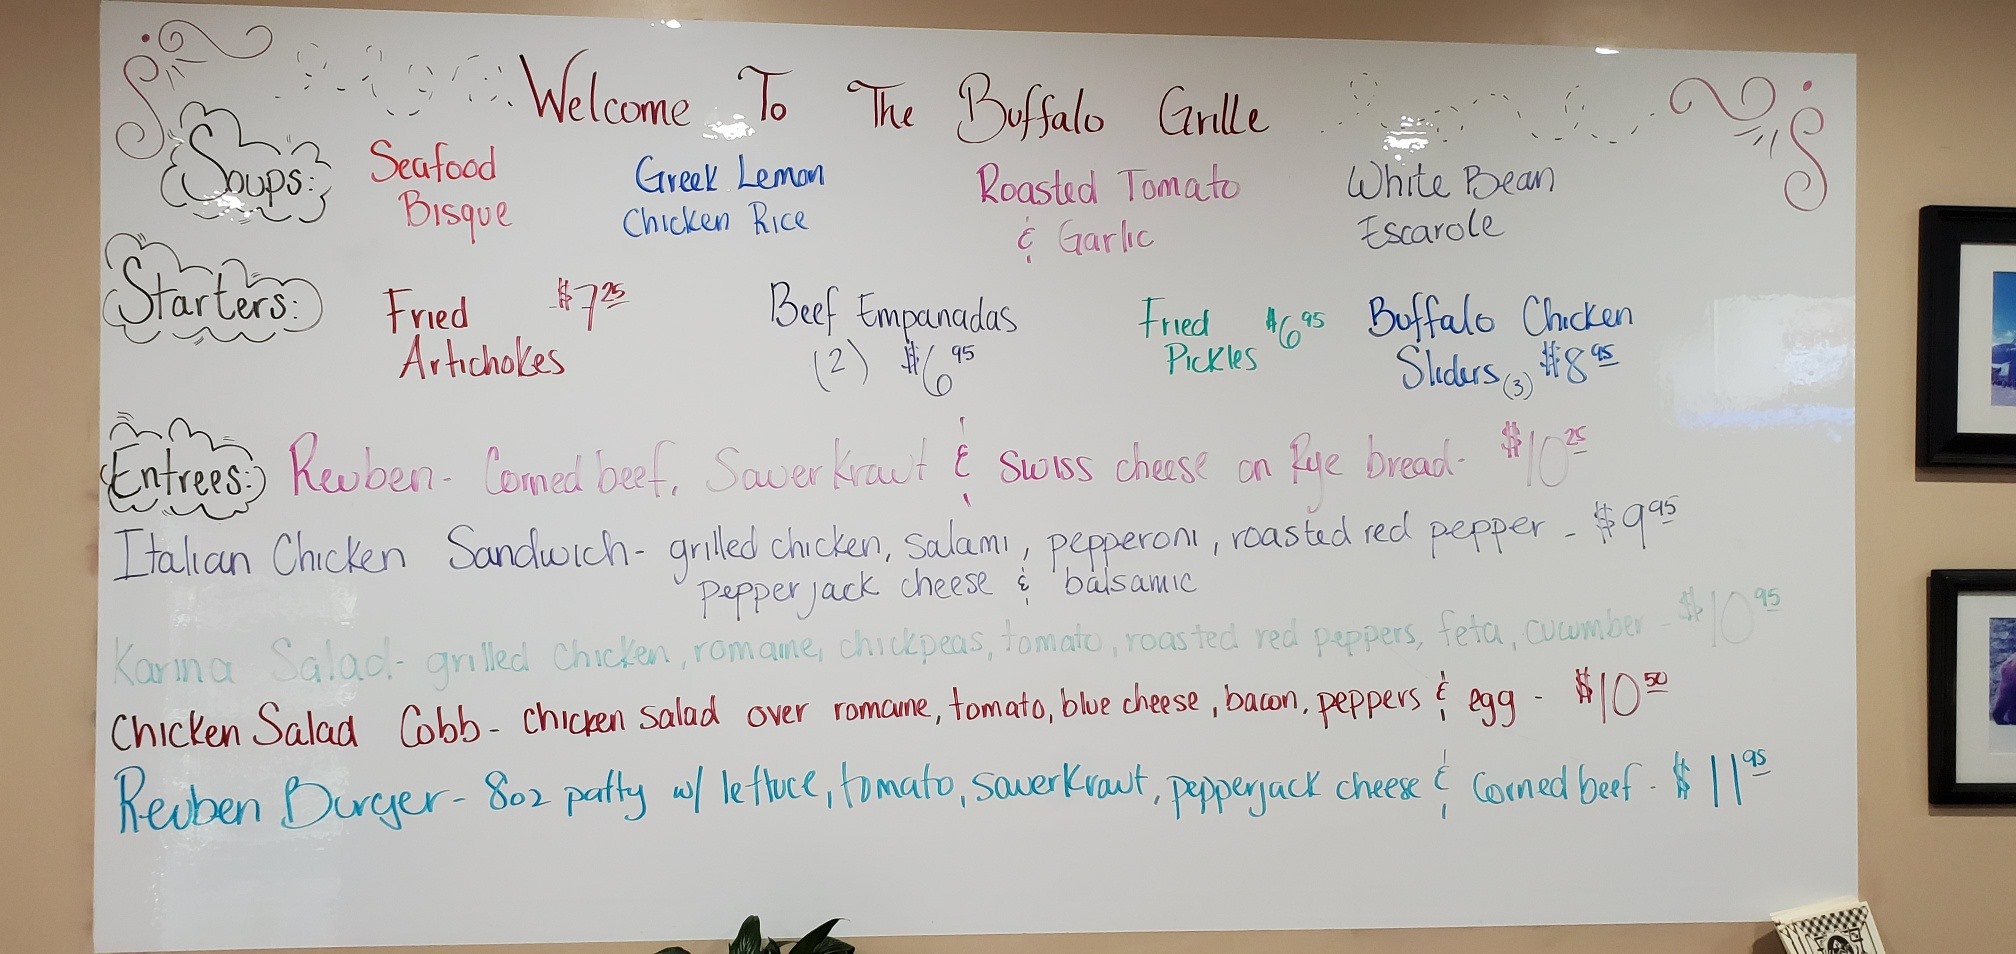 Welcome To The Buffalo Grille
Soups:
Seafood
Bisque
Greek Lemon
Chicken Rice
Roasted Tomato
& Garlic
White Bean
Escarole
Starters:
Fried $7 25
Artichokes
Beef Empanadas
(2) $6 95
Fried $6 95
Pickles
Buffalo Chicken
Sliders (3) $8 95
Entrees: Reuben- Corned beef, Sauerkraut & Swiss cheese on Rye bread- $10 25
Italian Chicken Sandwich- grilled chicken, salami, pepperoni, roasted red pepper - $9 95
pepperjack cheese & balsamic
Karina Salad- grilled chicken, romaine, chickpeas, tomato, roasted red peppers, feta, cucumber - $10 95
Chicken Salad Cobb- chicken salad over romaine, tomato, blue cheese, bacon, peppers & egg - $10 50
Reuben Burger- 8oz patty w/ lettuce, tomato, sauerkraut, pepperjack cheese & Corned beef - $11 95